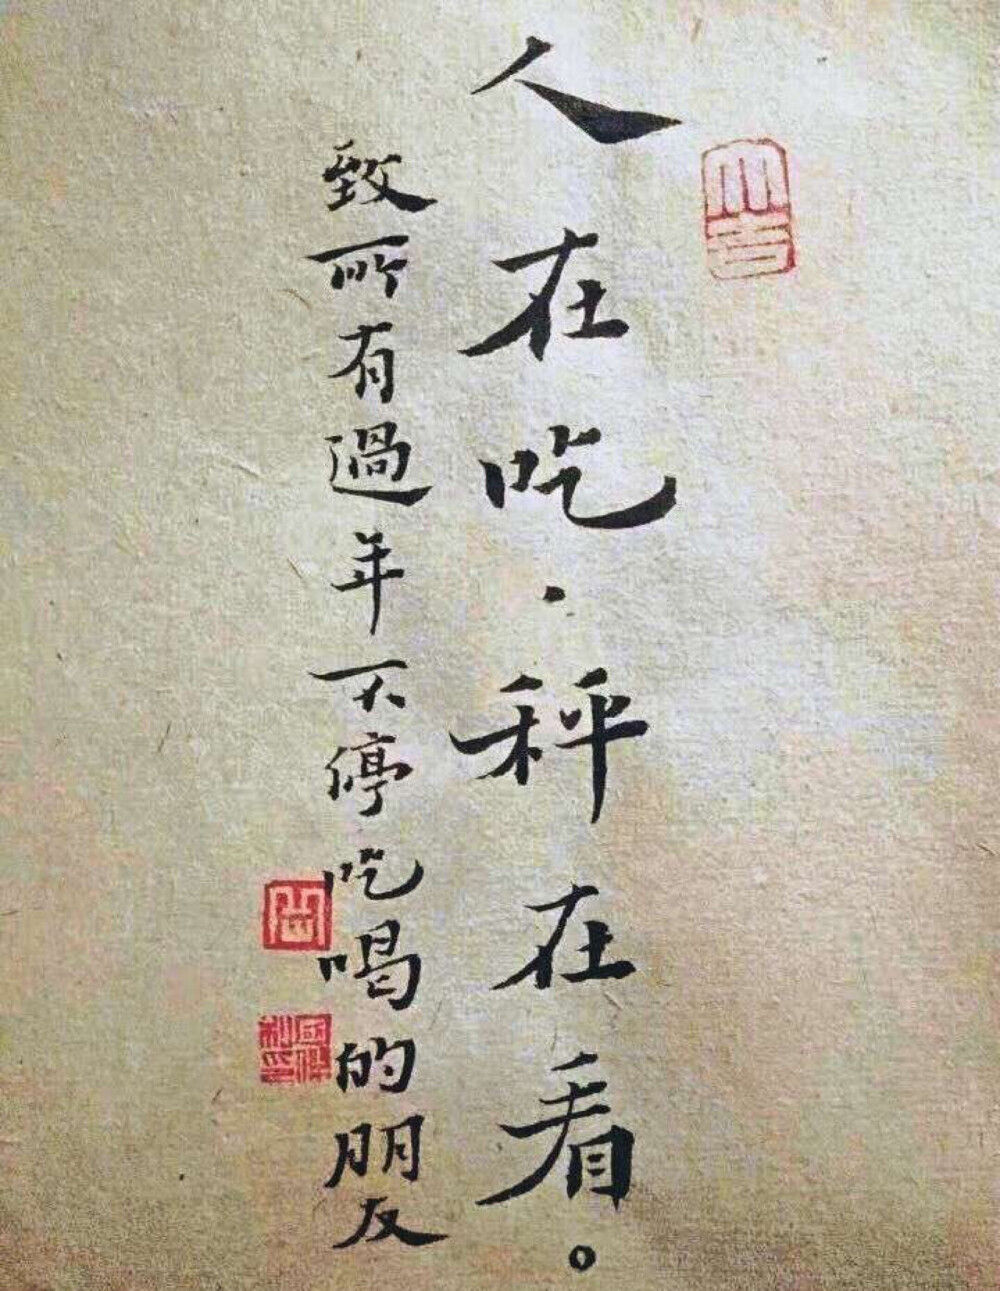 人在吃·秤在看。
致所有過年不停吃喝的朋友
大吉